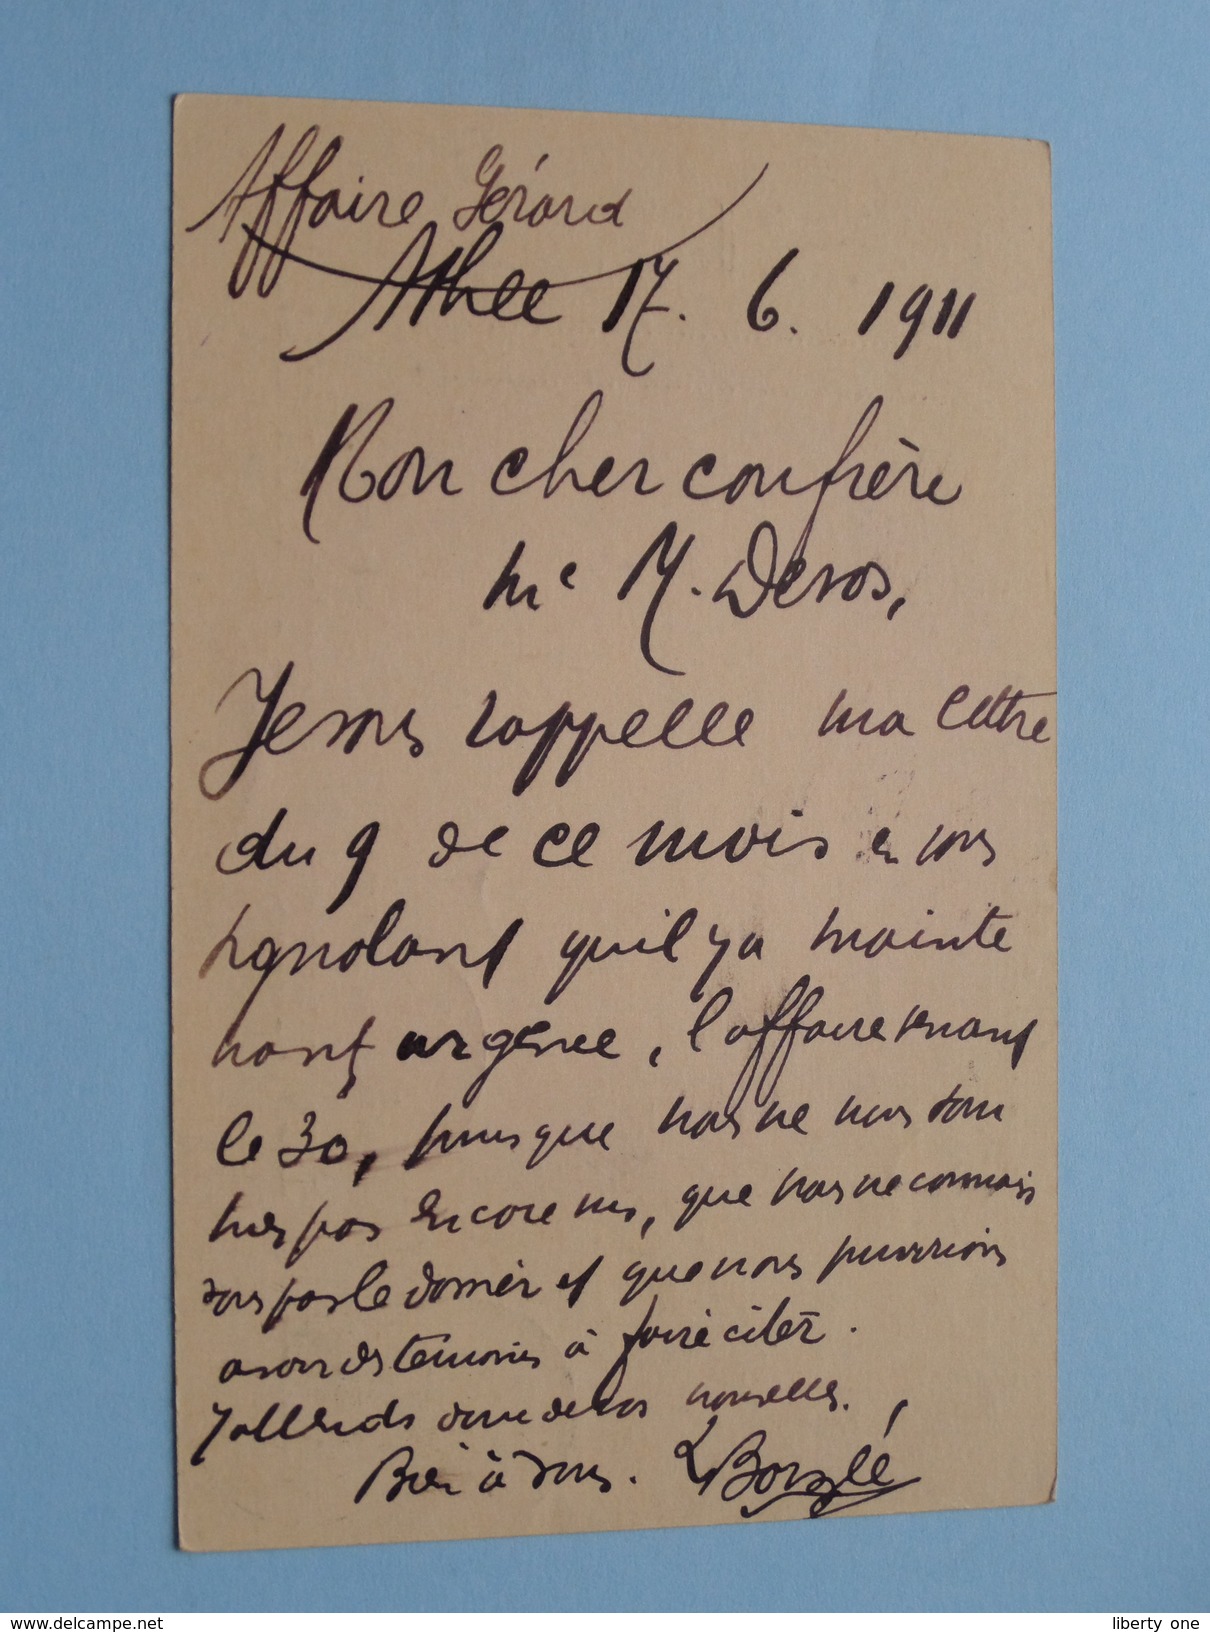 Affaire Gérard
Athée 17. 6. 1911
Mon cher confrère
Me M. Devos,
Je vous rappelle ma lettre
du 9 de ce mois en vous
signalant qu'il y a mainte
nant urgence, l'affaire venant
le 30, puisque nous ne nous som
mes pas encore vus, que nous ne connais
sons pas le dossier et que nous pourrions
avoir des témoins à faire citer.
J'attends donc de vos nouvelles.
Bien à vous.
www.delcampe.net
liberty_one